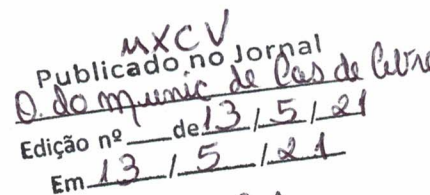 MXCV
Publicado no Jornal
O. do munic de Cas de
Edição nº ___ de 13 / 5 / 21
Em 13 / 5 / 21